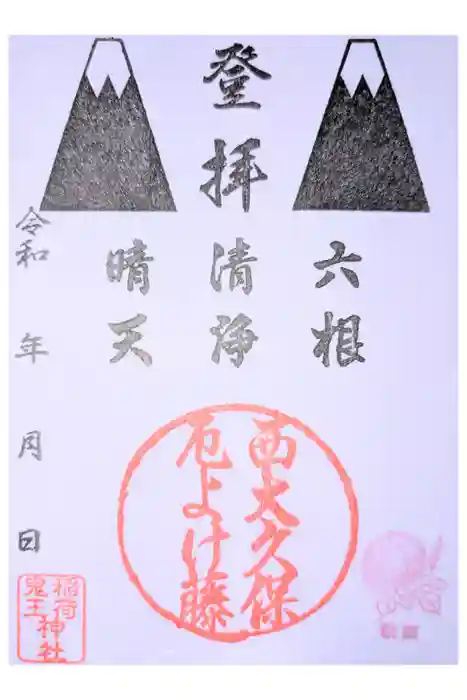 登拝
六根
清浄
晴天
西大久保
厄よけ藤
令和 年 月 日
稲荷
鬼王神社